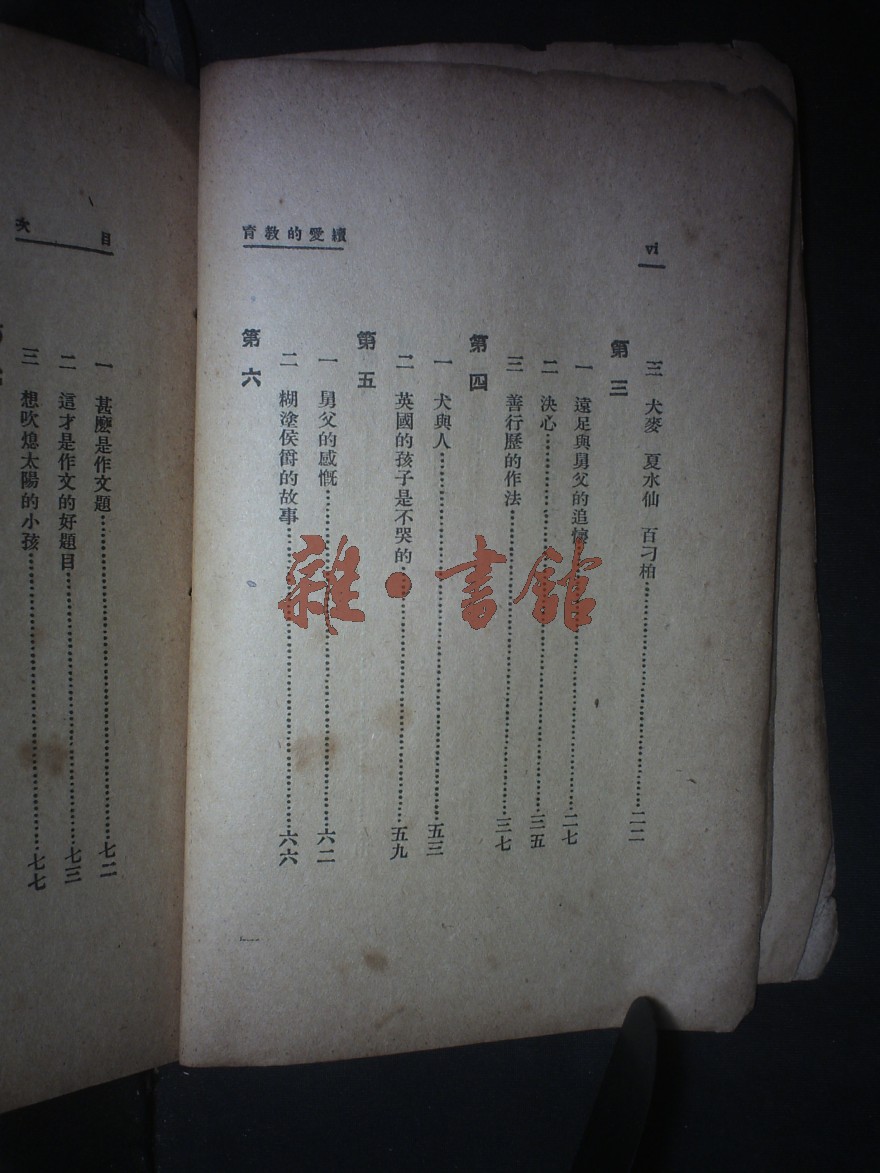 續愛的教育
vi
三 犬麥 夏水仙 百刁柏……二二
第三
一 遠足與舅父的追懷……二七
二 決心……三五
三 善行歷的作法……三七
第四
一 犬與人……五三
二 英國的孩子是不哭的……五九
第五
一 舅父的感慨……六二
二 糊塗侯爵的故事……六六
第六
目次
一 甚麽是作文題……七二
二 這才是作文的好題目……七三
三 想吹熄太陽的小孩……七七
雜·書館